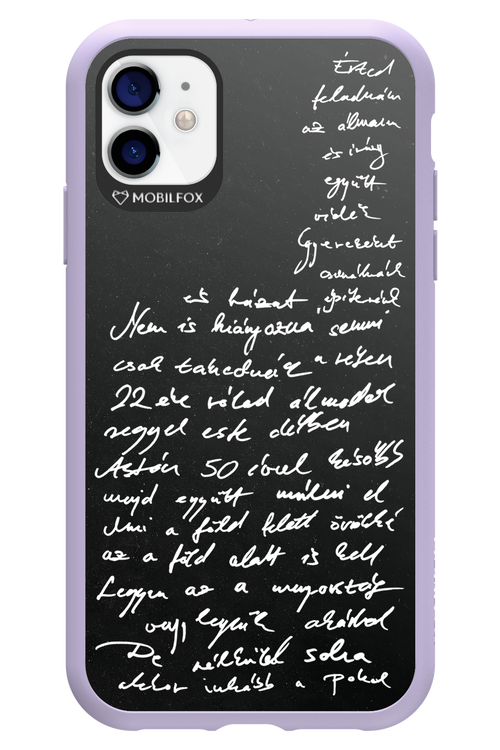 MOBILFOX
Érted
feladnám
az álmaim
és így
együtt
vidék
Gyerekeket
csinálnánk
és házat építenénk
Nem is hiányozna semmi
csak takednéz a részen
22 éve rólad álmodok
reggel este délben
Aztán 50 évvel később
majd együtt múlni el
Ami a föld felett örökké
az a föld alatt is kell
Legyen az a mennyország
vagy legyünk akárhol
De nélküled soha
akkor inkább a pokol